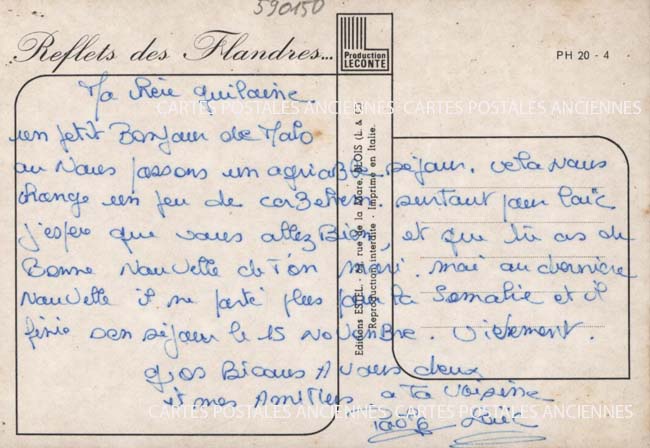 590150
Reflets des Flandres...
Production
LECONTE
PH 20 - 4
CARTES POSTALES ANCIENNES CARTES POSTALES ANCIENNES
Editions ESTEL - rue de la Mare, BLOIS (L. & C.)
Reproduction interdite - Imprimé en Italie.
Ma chère Guilaine
un petit Bonjour de Malo
au Nous passons un agriable séjour. cela Nous
change un peu de surtout pour Loïc
j'espère que vous allez Bien, et que tu as de
Bonne Nauvelle de Ton mari. moi au dernière
Nauvelle il ne parté plus pour la Somalie et il
finie son séjour le 15 Novembre. Vivement.
gros Bicous A vous deux
et mes Amitiers a Ta voisine
Loïc
CARTES POSTALES ANCIENNES CARTES POSTALES ANCIENNES